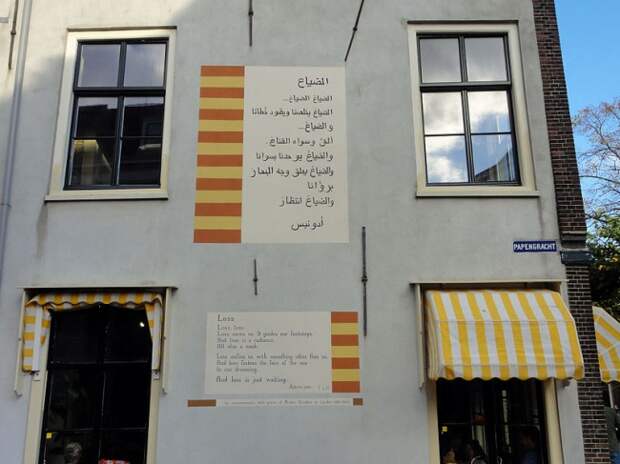 الضياع
الضياع الضياع...
الضياع يخلصنا ويقود خطانا
والضياع...
ألق وسواه القناع.
والضياع يوحدنا بسوانا
والضياع يعلق وجه البحار
برؤانا
والضياع انتظار
أدونيس
PAPENGRACHT
Loss
Loss, loss.
Loss saves us. It guides our footsteps.
And loss is a radiance,
All else a mask.
Loss unifies us with something other than us.
And loss fastens the face of the sea
to our dreaming.
And loss is just waiting.